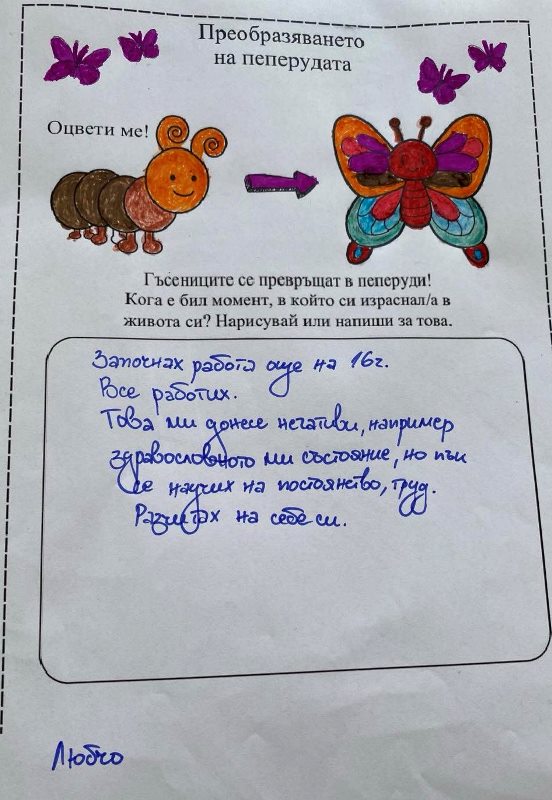 Преобразяването
на пеперудата
Оцвети ме!
Гъсениците се превръщат в пеперуди!
Кога е бил момент, в който си израснал/а в
живота си? Нарисувай или напиши за това.
Започнах работа още на 16г.
Все работих.
Това ми донесе негативи, например
здравословното ми състояние, но пък
се научих на постоянство, труд.
Разчитах на себе си.
Любчо